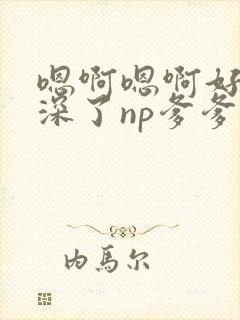 嗯啊嗯啊好
深了np爹爹
内马尔